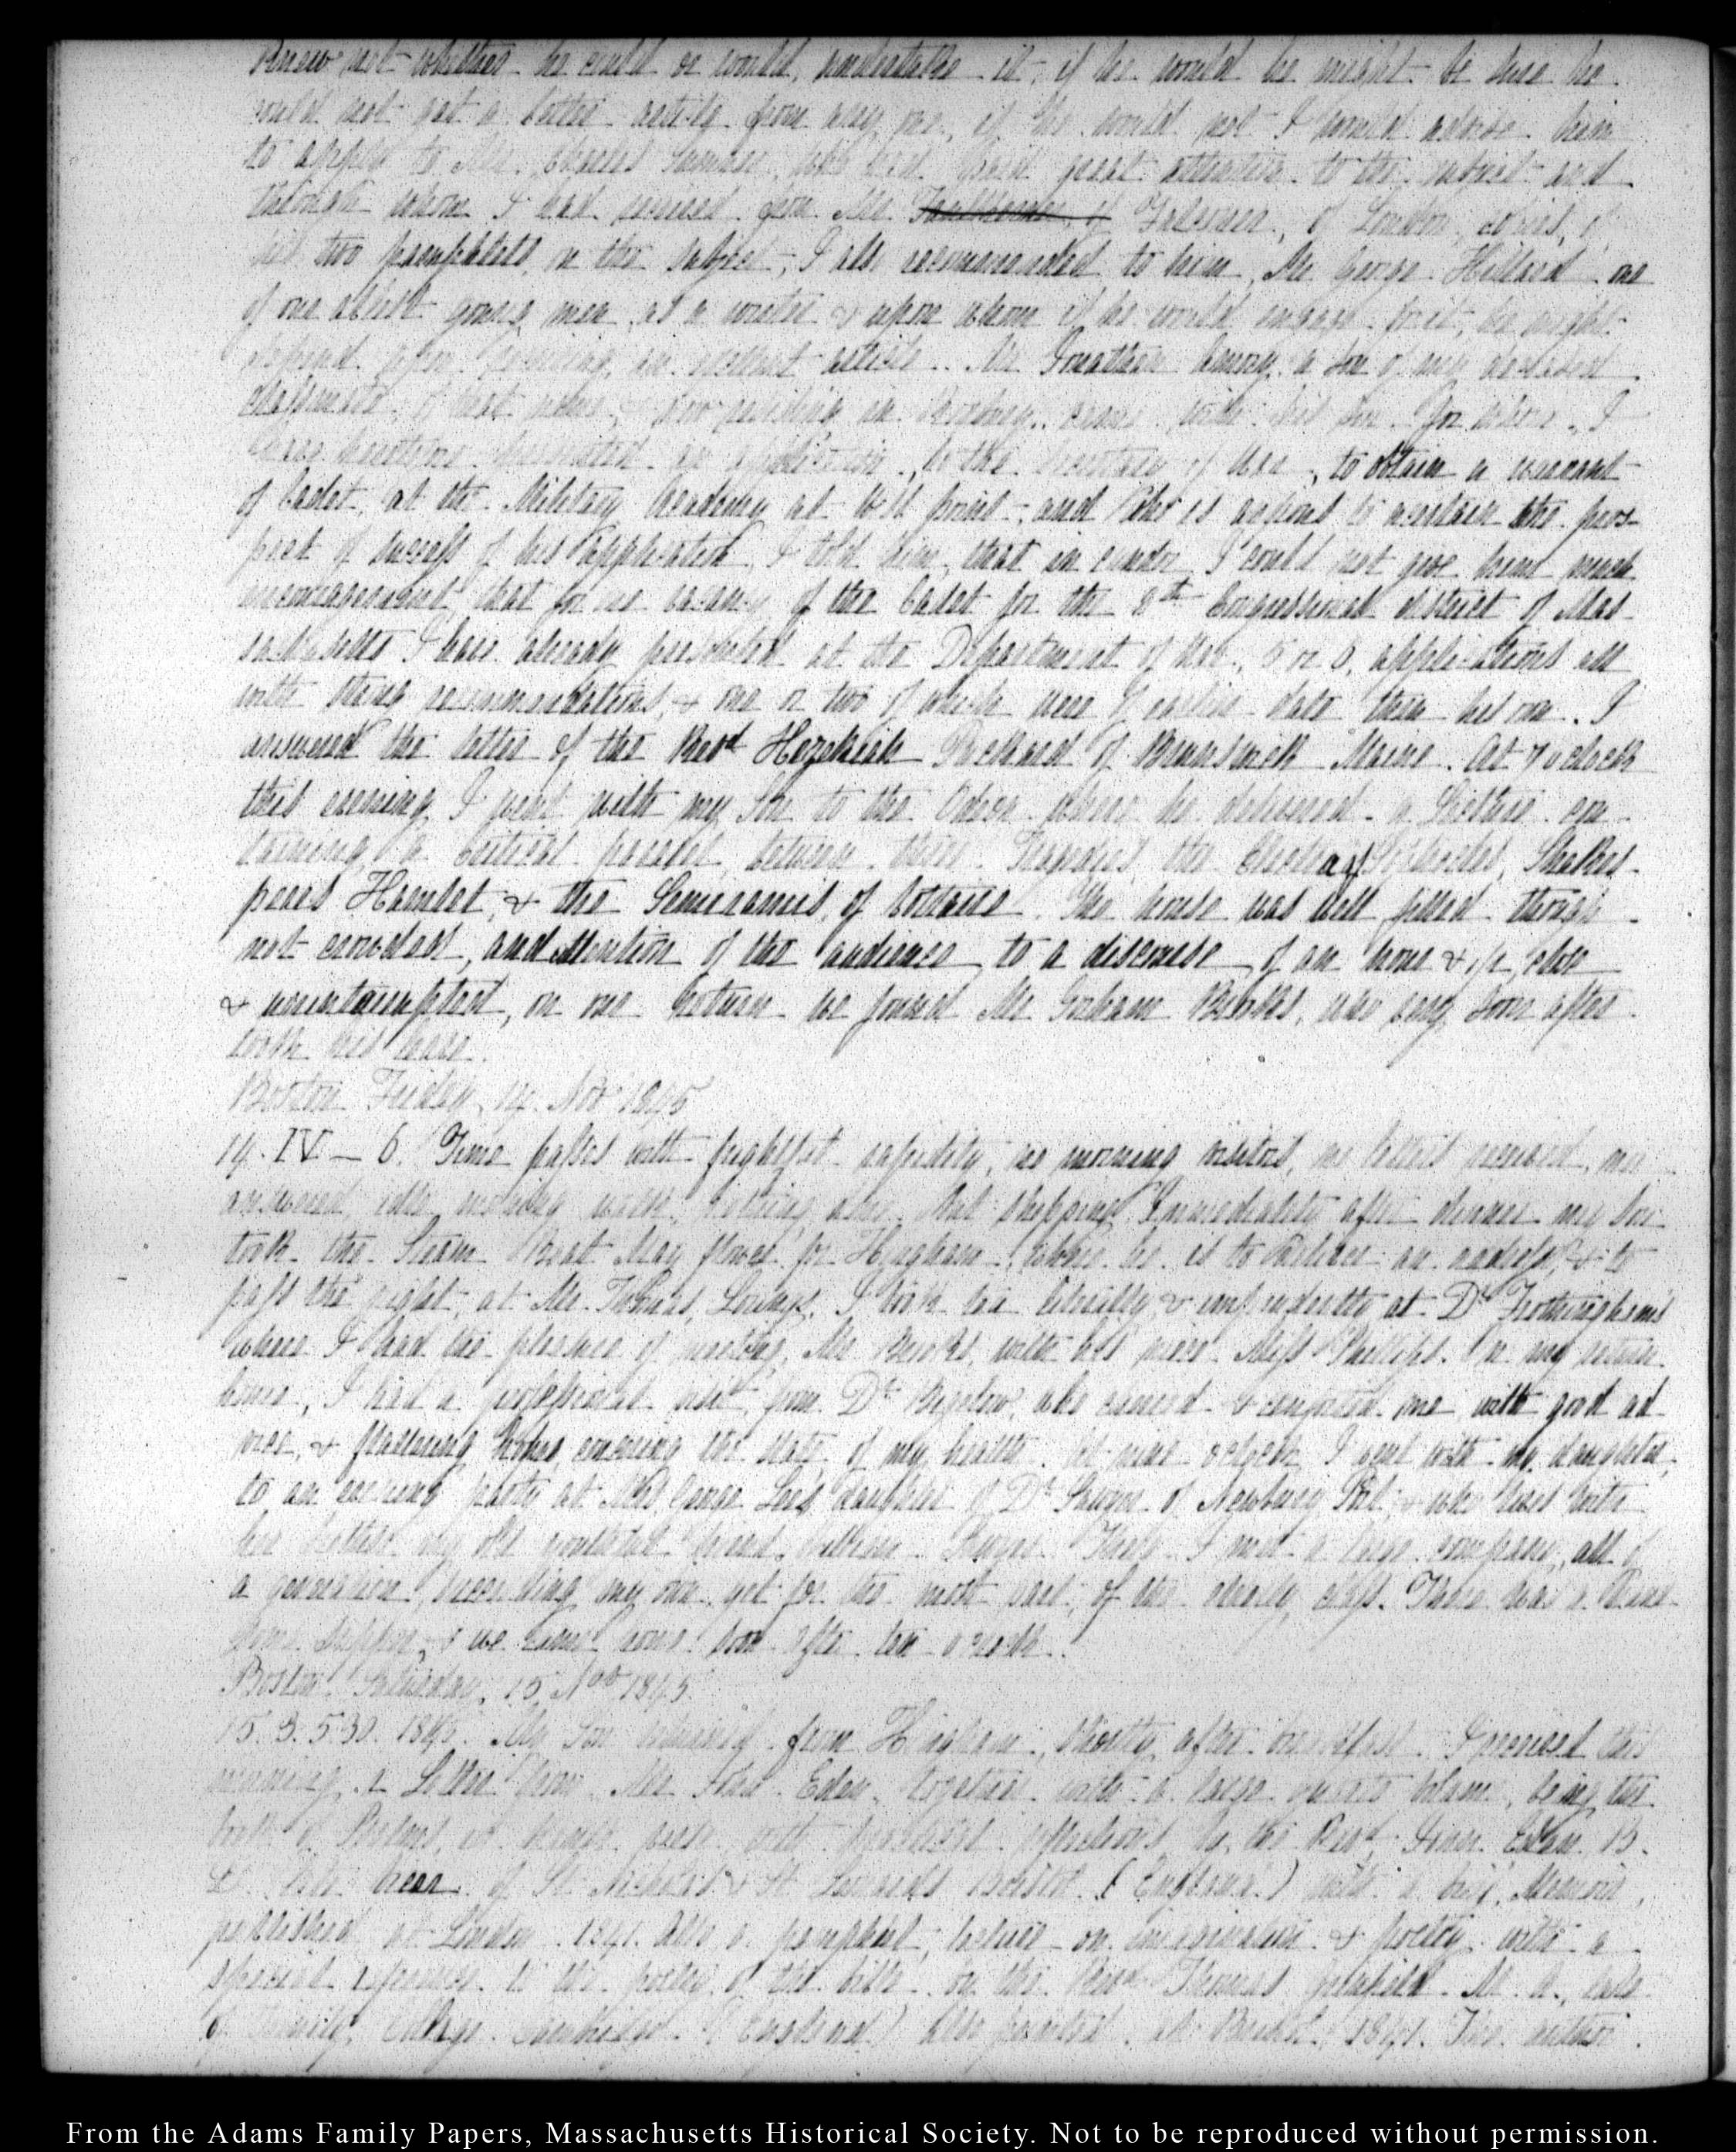 knew not whether he could or would, undertake it, if he would he might be sure he
could not get a better article from any one, if he would not I would advise him
to apply to Mr. Charles Sumner, who had paid great attention to the subject and
through whom I had received from Mr of of London, copies, of
his two pamphlets, on the subject, I also recommended to him, Mr George Hillard one
of our ablest young men as a writer & upon whom if he would engage for it, he might
depend upon receiving an excellent article. Mr Jonathan Amory a son of my deceased
classmate of that name, now residing in came with his son for whom, I
have heretofore presented an application, to the Secretary of War, to obtain a warrant
of Cadet, at the Military Academy at West point, and who is anxious to ascertain the pros-
pect of success of his application, I told him, that in candor I could not give him much
encouragement, that for one vacancy of the Cadet for the 8th Congressional district of Mas-
sachusetts I have already presented at the Department of War, 5 or 6, applications all
with strong recommendations, & one or two of which were of earlier date than his own. I
answered the letter of the Revd Hezekiah Packard of Brunswick Maine. At 7 o clock
this evening I went with my Son to the Odeon where he delivered a Lecture con-
taining, a critical parallel between three Tragedies, the Electra of Sophocles, Shakes-
pears Hamlet, & the Semiramis, of Voltaire. The house was well filled though
not crowded, and attention of the audience, to a discourse of an hour & 1/4, close
& uninterrupted, on our return we found Mr Gorham Brooks, who very soon after
took his leave.
Boston Friday, 14. Nov 1845
14. IV — 6. Time passes with frightful rapidity, no morning visitors, no letters received, none
answered, idle morning nothing done. But shopping. Immediately after dinner my Son
took the Steam Boat May flower for Hingham, where he is to deliver an address, & to
pass the night, at Mr. Thomas, Lorings. I took tea literally & imprudently at Dr Frothinghams
where I had the pleasure of meeting, Mr Brooks, with his niece Miss Phillips. On my return
home, I had a professional visit from Dr Bigelow, who cheered & comforted me with good ad
vice, & flattering concerning the state of my health. At nine o clock, I went with my daughter,
to an evening party at Mrs. George Lee's daughter of Dr Sawyer of Newbury Port, & who lives with
her my old youthful friend, William Sawyer. There I met a large company, all of
a generation succeeding my own, yet for the most part, of the elderly class. There was a hand
some supper, & we came home soon after ten o clock.
Boston Saturday, 15, Nov 1845.
15. 3. 5.30. 1845. My Son returned from Hingham, shortly after breakfast. I received this
morning, a Letter from Mr John Eden, together with a large quarto volume, being the
book of Psalms, in blank verse with practical reflections, by the Revd John Eden. B.
D. late Vicar of St Nicholas & St Leonards Bristol (England) with a brief Memoir,
published at London. 1841. Also a pamphlet, lecture on imagination & poetry with a
special reference to the poetry of the bible by the Revd Thomas Grinfield. M. A., late
of Trinity, College Cambridge. (England) Also printed at Bristol, 1841. The author
From the Adams Family Papers, Massachusetts Historical Society. Not to be reproduced without permission.